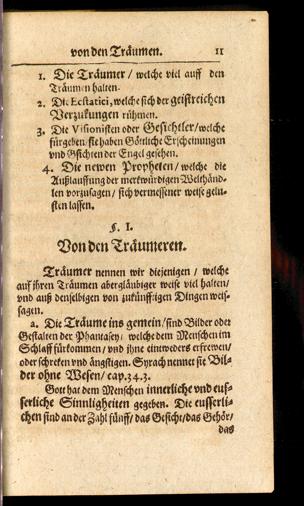 von den Träumen. 11
1. Die Träumer / welche viel auff den
Träumen halten.
2. Die Ecstatici, welche sich der geistreichen
Verzukungen rühmen.
3. Die Visionisten oder Gesichtler / welche
fürgeben sie haben Göttliche Erscheinungen
vnd Gsichten der Engel gesehen.
4. Die newen Propheten / welche die
Außlauffung der merkwürdigen Welthänd-
len vorzusagen / sich vermessener weise gelu-
sten lassen.
§. I.
Von den Träumeren.
Träumer nennen wir diejenigen / welche
auf ihren Träumen abergläubiger weise viel halten /
vnd auß denselbigen von zukünfftigen Dingen weis-
sagen.
a. Die Träume ins gemein / sind Bilder oder
Gestalten der Phantasey / welche dem Menschen im
Schlaff fürkommen / vnd jhne eintweders erfrewen /
oder schreken vnd ängstigen. Syrach nennet sie Bil-
der ohne Wesen / cap. 34. 3.
Gott hat dem Menschen innerliche vnd eus-
serliche Sinnligheiten gegeben. Die eusserli-
chen sind an der Zahl fünff / das Gesicht / das Gehör /
das